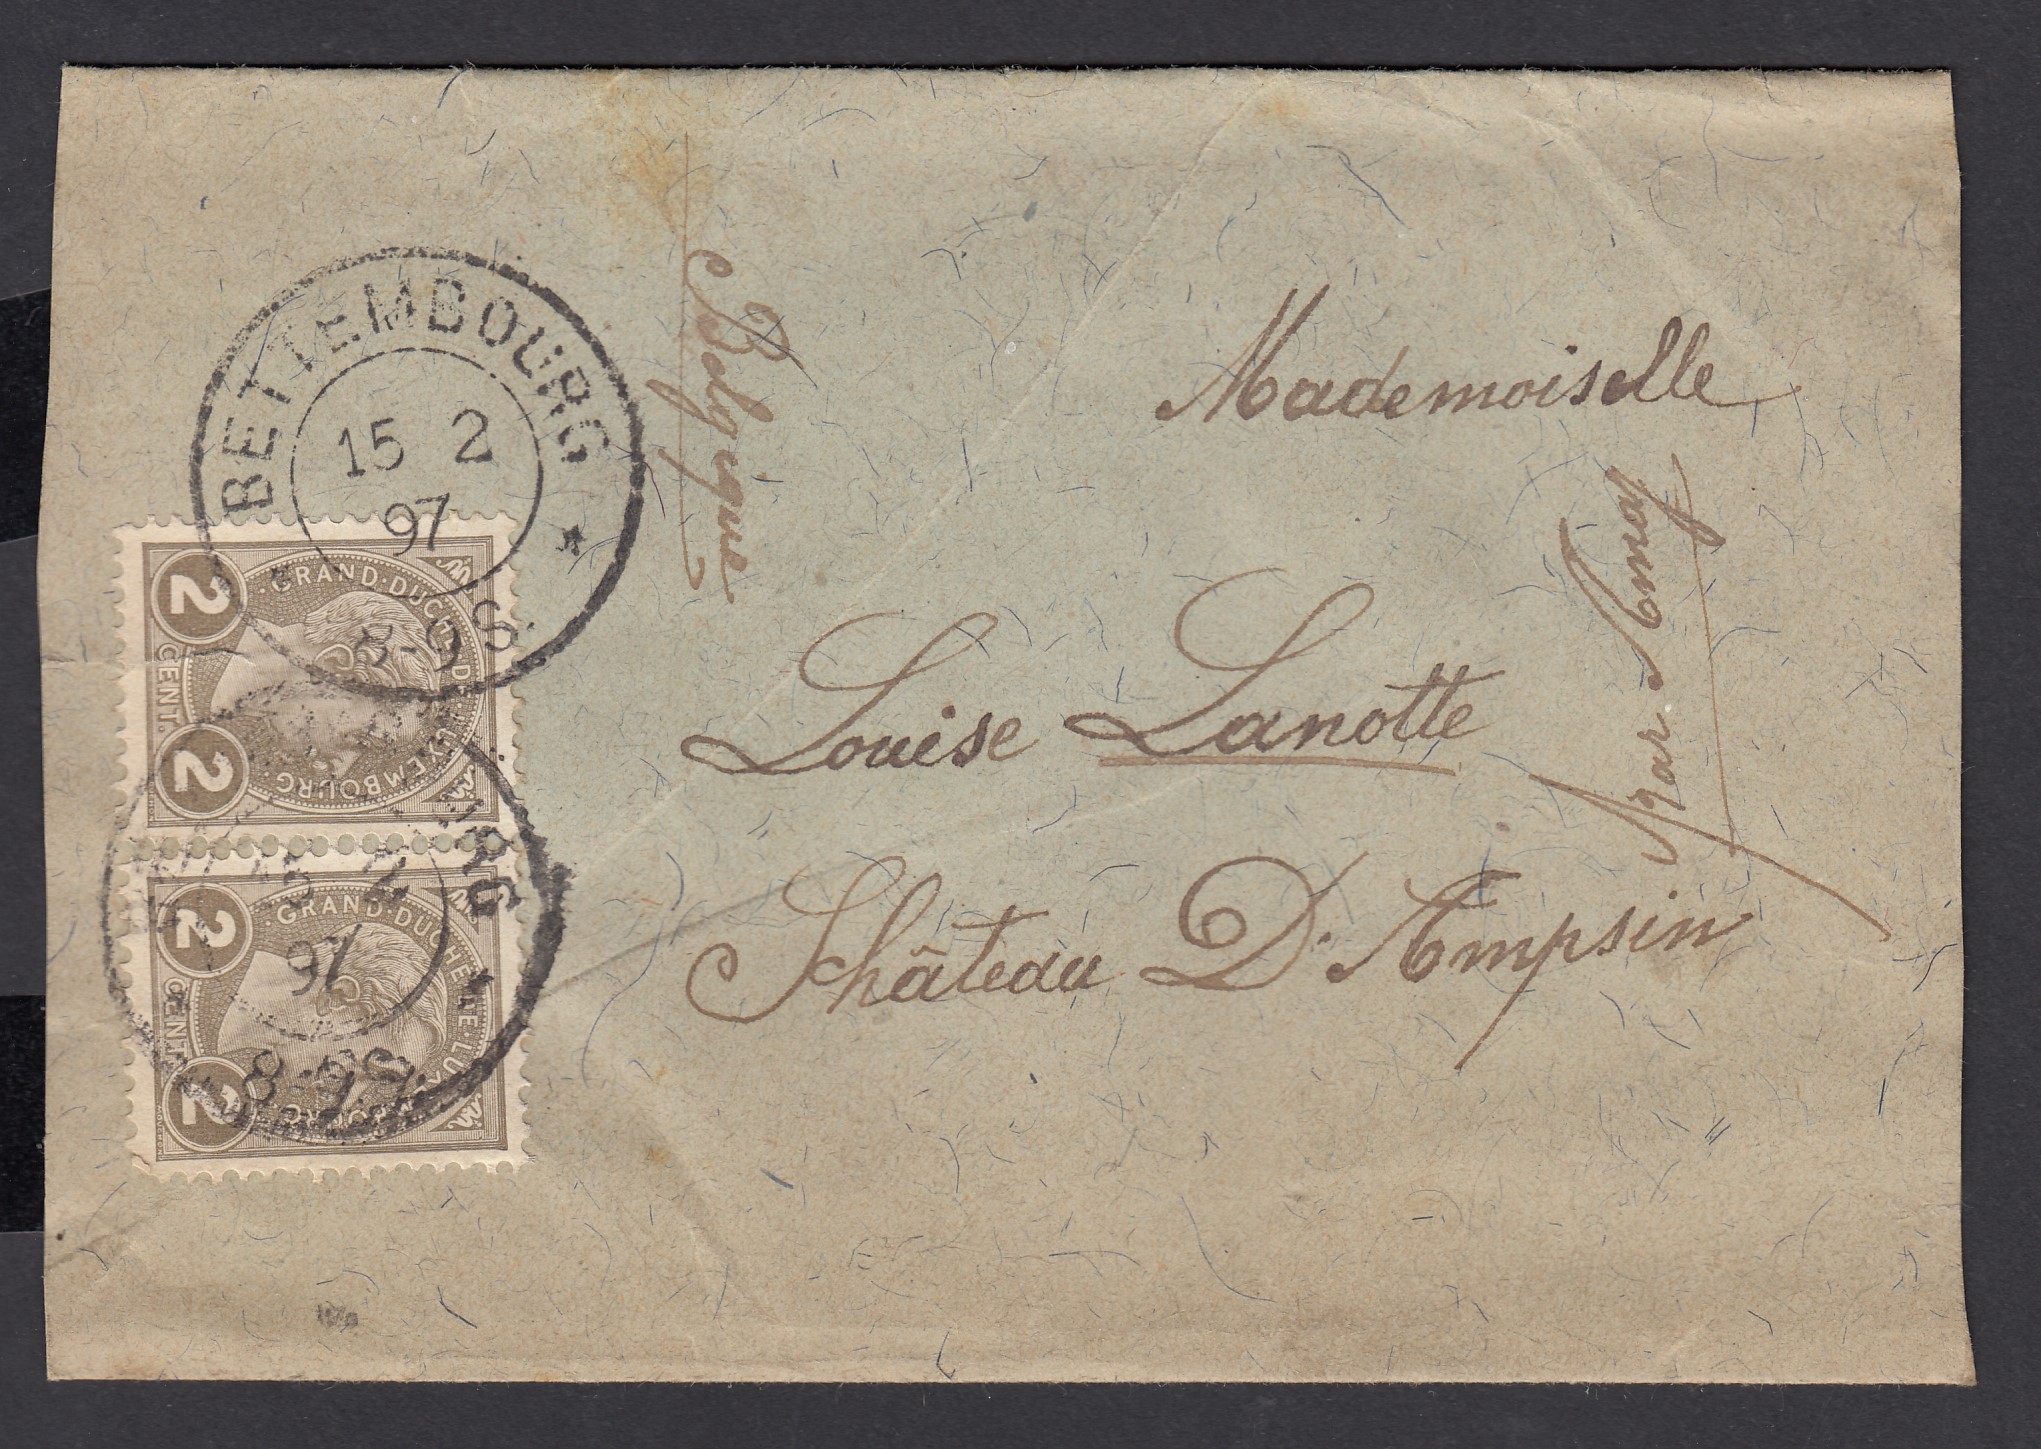 BETTEMBOURG
15 2
97
8-9S.
GRAND-DUCHÉ DE LUXEMBOURG
2 CENT. 2
URG
15 2
97
7-8S
GRAND-DUCHÉ DE LUXEMBOURG
2 CENT. 2
Belgique
Mademoiselle
Louise Lanotte
Château D'Ampsin
par Amay